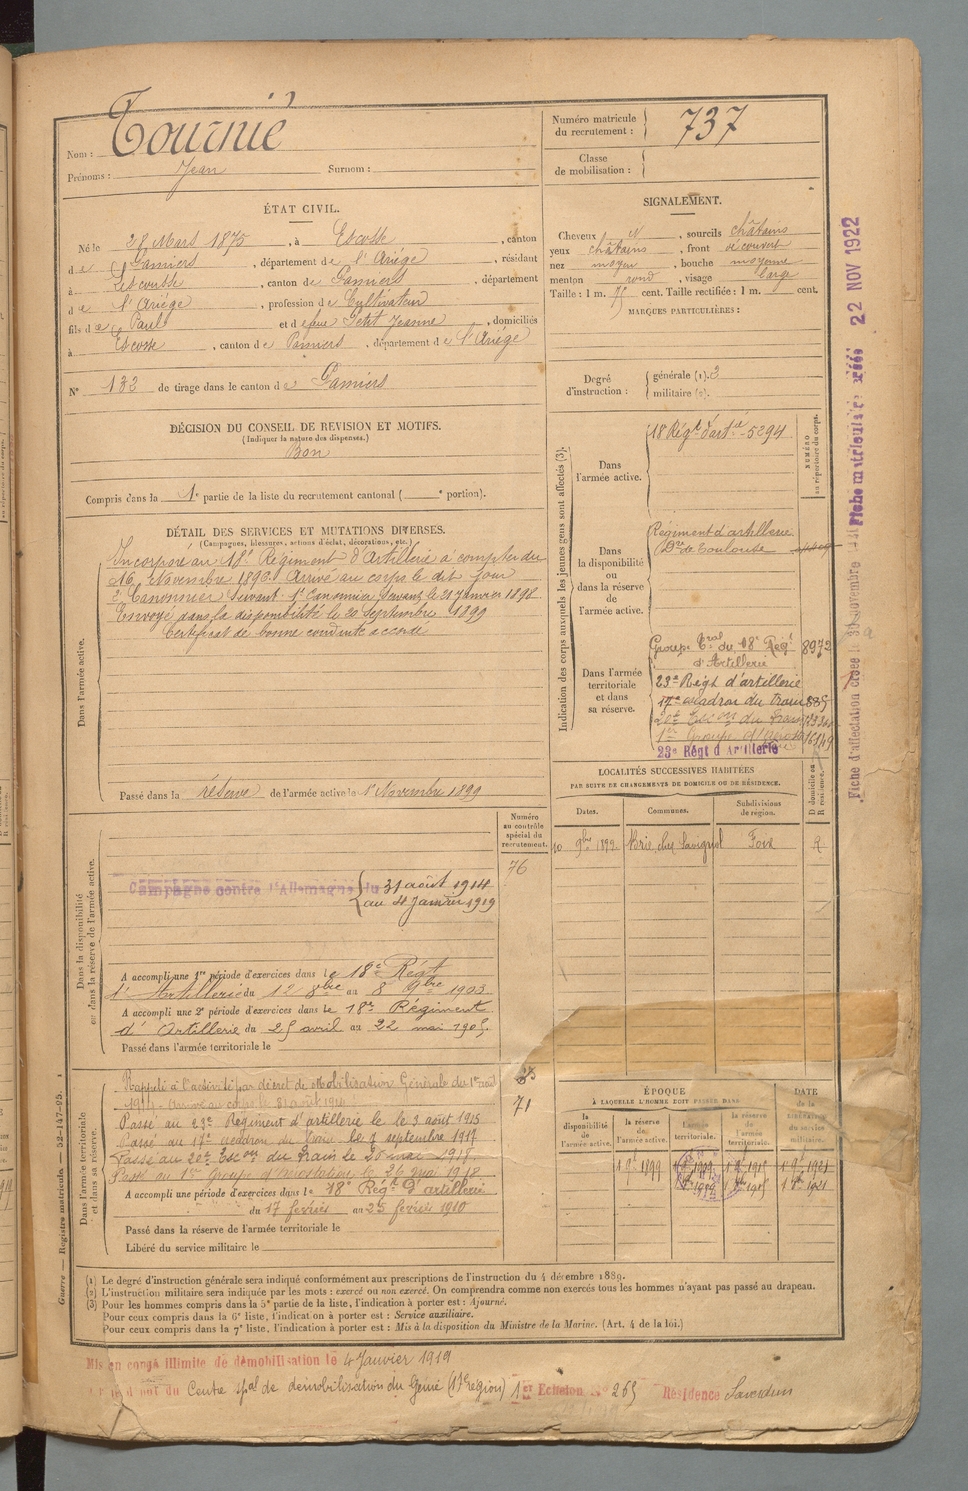 Nom : Tournié
Prénoms : Jean Surnom :
ÉTAT CIVIL.
Né le 28 Mars 1875, à Escosse, canton
de Pamiers, département de l'Ariège, résidant
à Lescousse, canton de Pamiers, département
de l'Ariège, profession de Cultivateur
fils de Paul et de feue Petit Jeanne, domiciliés
à Escosse, canton de Pamiers, département de l'Ariège
N° 132 de tirage dans le canton de Pamiers
DÉCISION DU CONSEIL DE REVISION ET MOTIFS.
(Indiquer la nature des dispenses.)
Bon
Compris dans la 1e partie de la liste du recrutement cantonal ( e portion).
DÉTAIL DES SERVICES ET MUTATIONS DIVERSES.
(Campagnes, blessures, actions d'éclat, décorations, etc.)
Dans l'armée active.
Incorporé au 18e Régiment d'Artillerie à compter du
16 Novembre 1896. Arrivé au corps le dit jour
2e Canonnier Servant. 1er Canonnier Servant le 21 janvier 1898
Envoyé dans la disponibilité le 20 Septembre 1899
Certificat de bonne conduite accordé
Passé dans la réserve de l'armée active le 1er Novembre 1899
Numéro
au contrôle
spécial du
recrutement.
76
Dans la disponibilité
ou dans la réserve de l'armée active.
Campagne contre l'Allemagne du 31 août 1914
au 4 Janvier 1919
A accompli une 1re période d'exercices dans le 18e Régt
d'Artillerie du 12 8bre au 8 9bre 1903
A accompli une 2e période d'exercices dans le 18e Régiment
d'Artillerie du 25 avril au 22 mai 1905
Passé dans l'armée territoriale le
Dans l'armée territoriale
et dans sa réserve.
Rappelé à l'activité par décret de Mobilisation Générale du 1er août
1914 - Arrivé au corps le 31 août 1914
71
Passé au 23e Régiment d'artillerie le le 3 août 1915
Passé au 17e escadron du Train le 1 septembre 1917
Passé au 20e Escon du Train le 25 mai 1918
Passé au 1er Groupe d'Aérostation le 26 mai 1918
A accompli une période d'exercices dans le 18e Régt d'artillerie
du 17 février au 25 février 1910
Passé dans la réserve de l'armée territoriale le
Libéré du service militaire le
Numéro matricule
du recrutement : 737
Classe
de mobilisation :
SIGNALEMENT.
Cheveux N, sourcils châtains
yeux châtains, front découvert
nez moyen, bouche moyenne
menton rond, visage large
Taille : 1 m. 75 cent. Taille rectifiée : 1 m. cent.
MARQUES PARTICULIÈRES :
Degré
d'instruction :
générale (1). 3
militaire (2).
Indication des corps auxquels les jeunes gens sont affectés (3).
NUMÉRO
au répertoire du corps.
Dans
l'armée active.
18 Régt d'artie 5294
Dans
la disponibilité
ou
dans la réserve
de
l'armée active.
Régiment d'artillerie
Don de Toulouse
Dans l'armée
territoriale
et dans
sa réserve.
Groupe Tral du 18e Régt 8972
d'Artillerie
23e Régt d'artillerie
17e escadron du train
20e Escon du Train
1er Groupe d'Aérost
23e Régt d'Artillerie
LOCALITÉS SUCCESSIVES HABITÉES
PAR SUITE DE CHANGEMENTS DE DOMICILE OU DE RÉSIDENCE.
Dates. Communes. Subdivisions
de région. D domicile ou
R résidence.
10 9bre 1899 Brie, chez Savignol Foix R
ÉPOQUE
À LAQUELLE L'HOMME DOIT PASSER DANS
la
disponibilité
de
l'armée active.
la réserve
de
l'armée active.
l'armée
territoriale.
la réserve
de
l'armée
territoriale.
DATE
de la
LIBÉRATION
du service
militaire.
1 9e 1899 1 9e 1909 1 9e 1915 1 9e 1921
Guerre — Registre matricule. — 52-147-95.
(1) Le degré d'instruction générale sera indiqué conformément aux prescriptions de l'instruction du 4 décembre 1889.
(2) L'instruction militaire sera indiquée par les mots : exercé ou non exercé. On comprendra comme non exercés tous les hommes n'ayant pas passé au drapeau.
(3) Pour les hommes compris dans la 5e partie de la liste, l'indication à porter est : Ajourné.
Pour ceux compris dans la 6e liste, l'indication à porter est : Service auxiliaire.
Pour ceux compris dans la 7e liste, l'indication à porter est : Mis à la disposition du Ministre de la Marine. (Art. 4 de la loi.)
Mis en congé illimité de démobilisation le 4 Janvier 1919
du Centre spal de démobilisation du Génie (17e région) 1er Echelon N° 265 Résidence Saverdun
22 NOV 1922
Fiche matriculaire créée
Fiche d'affectation créée le 30 novembre